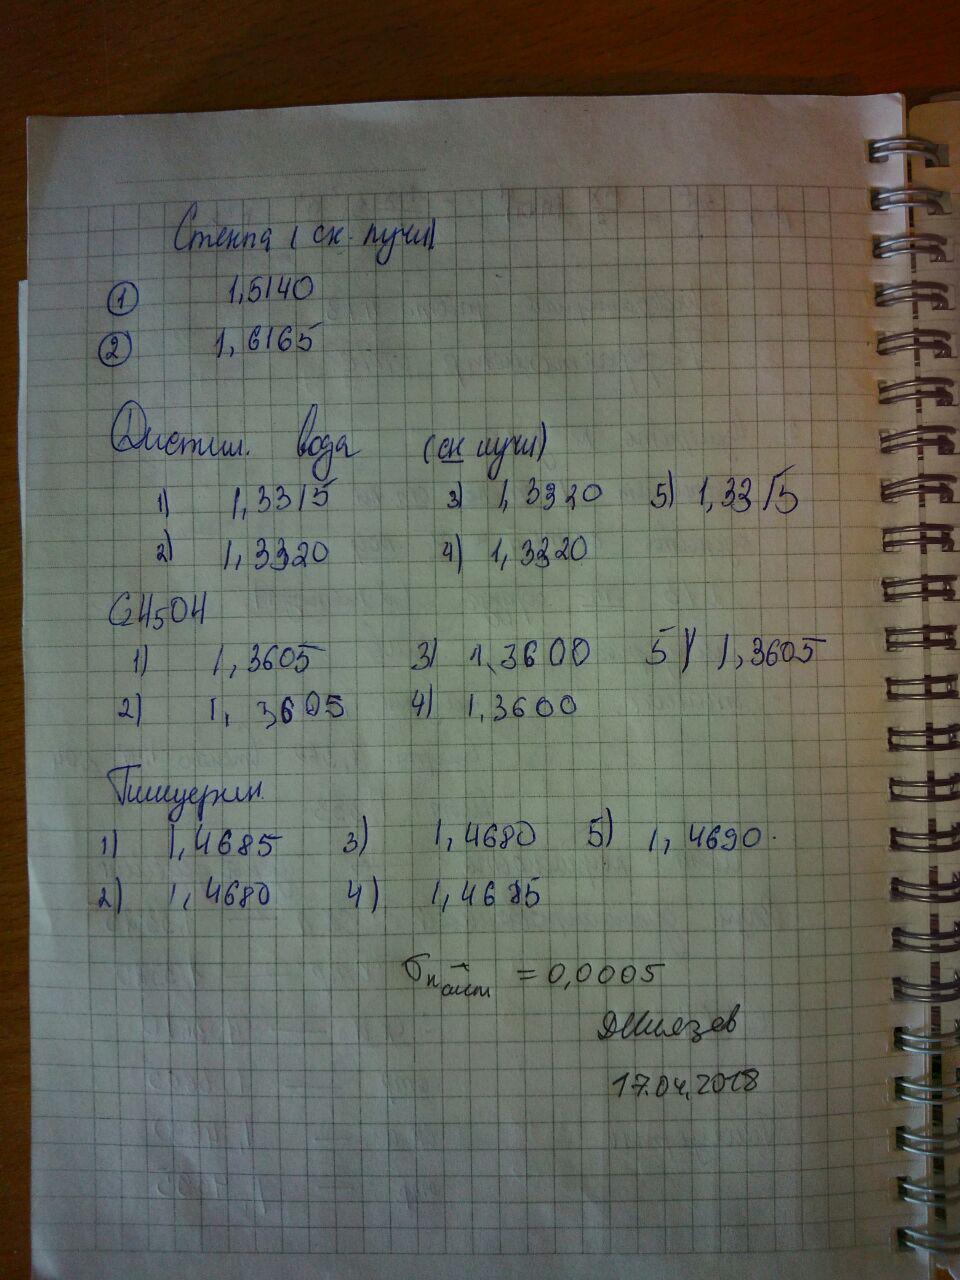 Стекла (ск. лучи)
① 1,5140
② 1,6165
Дистил. вода (ск лучи)
1) 1,3315 3) 1,3320 5) 1,3315
2) 1,3320 4) 1,3320
C2H5OH
1) 1,3605 3) 1,3600 5) 1,3605
2) 1,3605 4) 1,3600
Глицерин.
1) 1,4685 3) 1,4680 5) 1,4690.
2) 1,4680 4) 1,4685
σn сист = 0,0005
17.04.2018